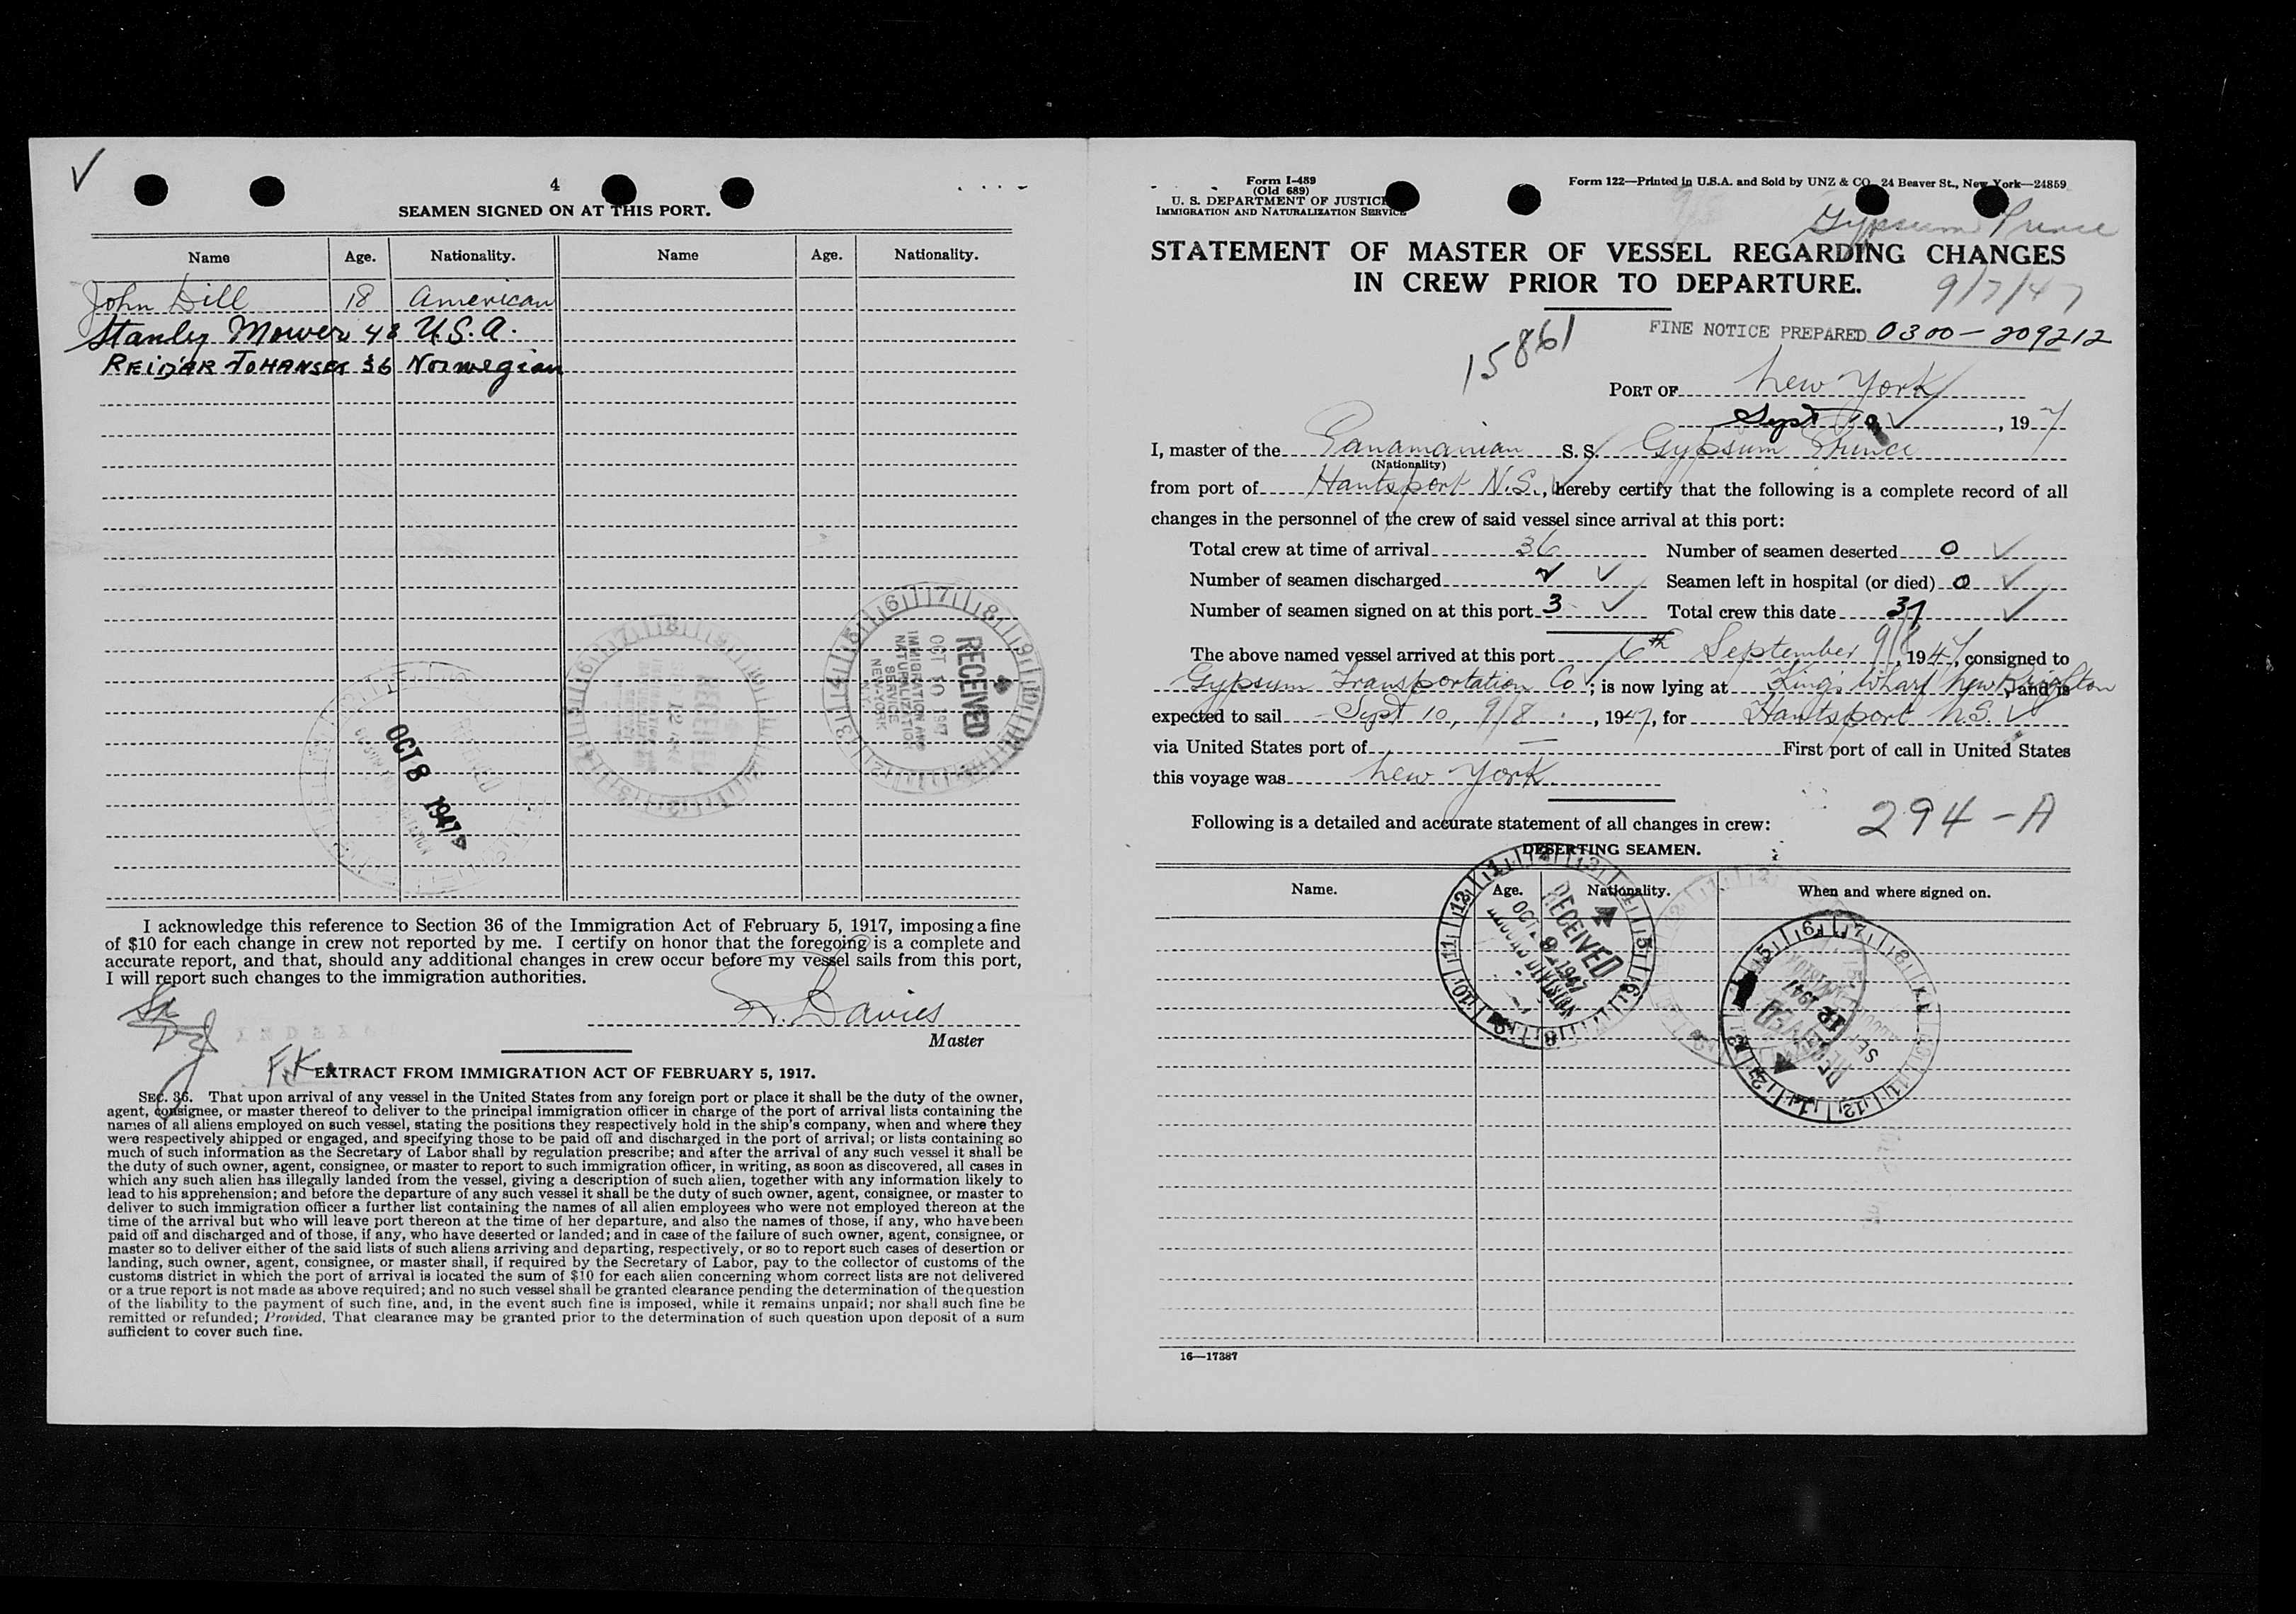 4
SEAMEN SIGNED ON AT THIS PORT.
Name Age. Nationality. Name Age. Nationality.
John Dill 18 American
Stanley Mower 48 U.S.A.
REIDAR JOHANSEN 36 Norwegian
RECEIVED
OCT 10 1947
IMMIGRATION AND
NATURALIZATION
SERVICE
NEW-YORK
N.Y.
OCT 8 1947
I acknowledge this reference to Section 36 of the Immigration Act of February 5, 1917, imposing a fine
of $10 for each change in crew not reported by me. I certify on honor that the foregoing is a complete and
accurate report, and that, should any additional changes in crew occur before my vessel sails from this port,
I will report such changes to the immigration authorities.
Davies
Master
F.K.
EXTRACT FROM IMMIGRATION ACT OF FEBRUARY 5, 1917.
SEC. 36. That upon arrival of any vessel in the United States from any foreign port or place it shall be the duty of the owner,
agent, consignee, or master thereof to deliver to the principal immigration officer in charge of the port of arrival lists containing the
names of all aliens employed on such vessel, stating the positions they respectively hold in the ship's company, when and where they
were respectively shipped or engaged, and specifying those to be paid off and discharged in the port of arrival; or lists containing so
much of such information as the Secretary of Labor shall by regulation prescribe; and after the arrival of any such vessel it shall be
the duty of such owner, agent, consignee, or master to report to such immigration officer, in writing, as soon as discovered, all cases in
which any such alien has illegally landed from the vessel, giving a description of such alien, together with any information likely to
lead to his apprehension; and before the departure of any such vessel it shall be the duty of such owner, agent, consignee, or master to
deliver to such immigration officer a further list containing the names of all alien employees who were not employed thereon at the
time of the arrival but who will leave port thereon at the time of her departure, and also the names of those, if any, who have been
paid off and discharged and of those, if any, who have deserted or landed; and in case of the failure of such owner, agent, consignee, or
master so to deliver either of the said lists of such aliens arriving and departing, respectively, or so to report such cases of desertion or
landing, such owner, agent, consignee, or master shall, if required by the Secretary of Labor, pay to the collector of customs of the
customs district in which the port of arrival is located the sum of $10 for each alien concerning whom correct lists are not delivered
or a true report is not made as above required; and no such vessel shall be granted clearance pending the determination of the question
of the liability to the payment of such fine, and, in the event such fine is imposed, while it remains unpaid; nor shall such fine be
remitted or refunded; Provided, That clearance may be granted prior to the determination of such question upon deposit of a sum
sufficient to cover such fine.
Form I-489
(Old 689)
U. S. DEPARTMENT OF JUSTICE
IMMIGRATION AND NATURALIZATION SERVICE
Form 122—Printed in U.S.A. and Sold by UNZ & CO. 24 Beaver St., New York—24859
Gypsum Prince
STATEMENT OF MASTER OF VESSEL REGARDING CHANGES
IN CREW PRIOR TO DEPARTURE.
9/7/47
FINE NOTICE PREPARED 0300-209212
15861
PORT OF New York
Sept , 1947
I, master of the Panamanian S.S. Gypsum Prince
(Nationality)
from port of Hantsport N.S., hereby certify that the following is a complete record of all
changes in the personnel of the crew of said vessel since arrival at this port:
Total crew at time of arrival 36 Number of seamen deserted 0
Number of seamen discharged 2 Seamen left in hospital (or died) 0
Number of seamen signed on at this port 3 Total crew this date 37
The above named vessel arrived at this port 6th September 9/8, 1947, consigned to
Gypsum Transportation Co; is now lying at King's Wharf New Brighton, and is
expected to sail Sept 10, 9/8, 1947, for Hantsport N.S.
via United States port of — First port of call in United States
this voyage was New York
Following is a detailed and accurate statement of all changes in crew:
294-A
DESERTING SEAMEN.
Name. Age. Nationality. When and where signed on.
RECEIVED
OCT 9 1947
RECORD DIVISION
16—17387